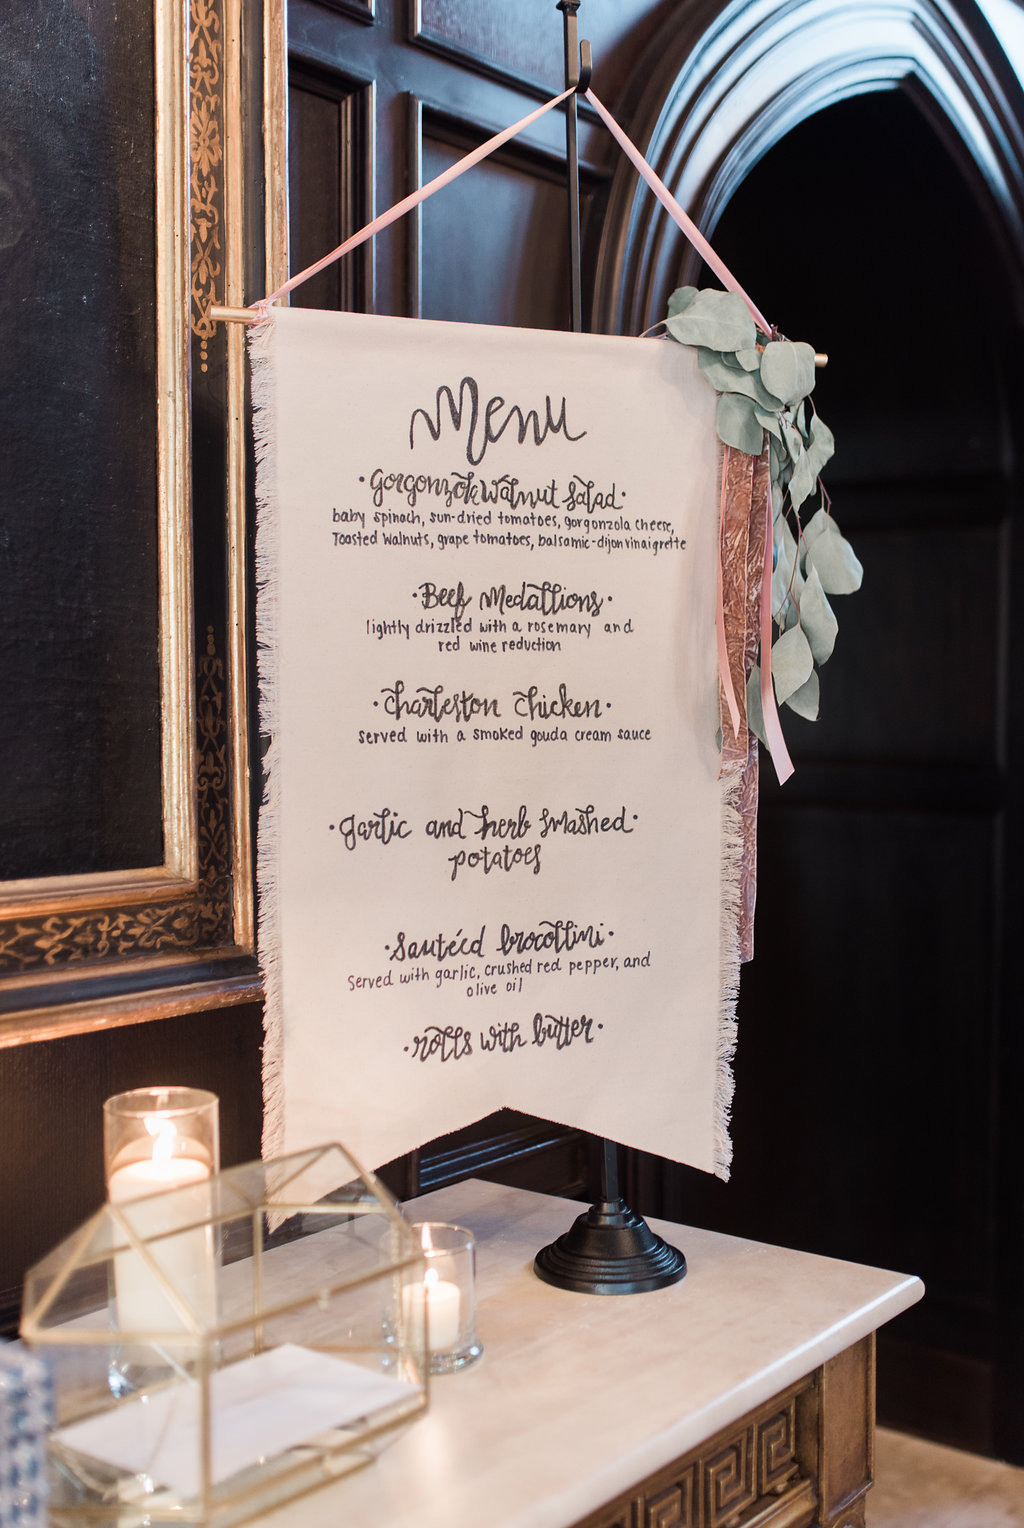 Menu
·Gorgonzola Walnut Salad·
baby spinach, sun-dried tomatoes, gorgonzola cheese,
Toasted Walnuts, grape tomatoes, balsamic-dijon vinaigrette
·Beef Medallions·
lightly drizzled with a rosemary and
red wine reduction
·Charleston Chicken·
served with a smoked gouda cream sauce
·garlic and herb smashed·
potatoes
·Sauteéd brocollini·
Served with garlic, crushed red pepper, and
olive oil
·rolls with butter·